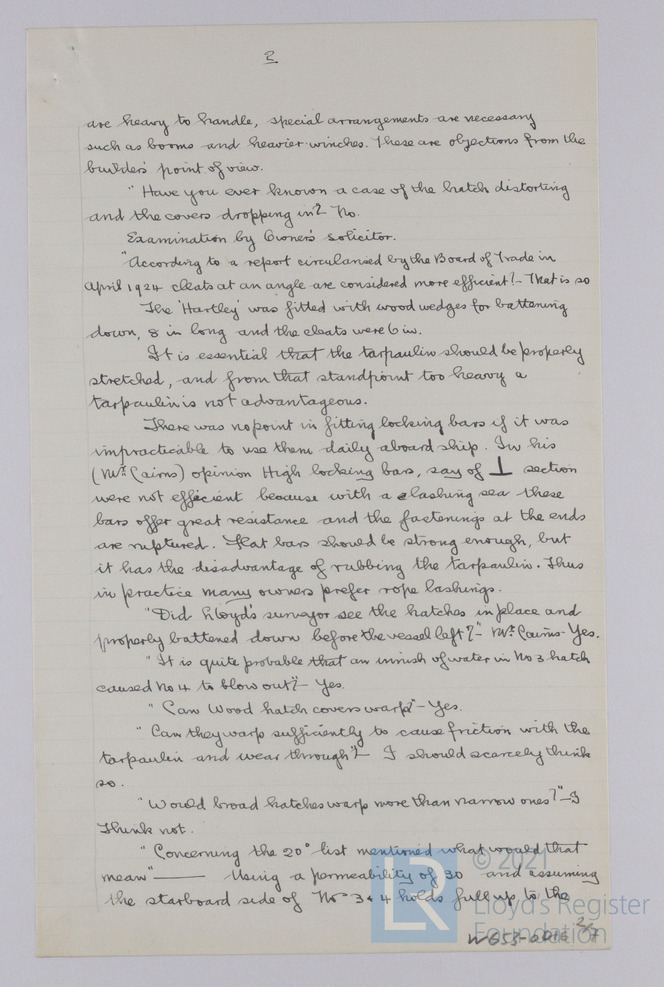 2
are heavy to handle, special arrangements are necessary
such as booms and heavier winches. These are objections from the
builders' point of view.
"Have you ever known a case of the hatch distorting
and the covers dropping in? No.
Examination by Owner's Solicitor.
"According to a report circularised by the Board of Trade in
April 1924 cleats at an angle are considered more efficient?- That is so
The 'Hartley' was fitted with wood wedges for battening
down, 8 in long and the cleats were 6 in.
It is essential that the tarpaulin should be properly
stretched, and from that standpoint too heavy a
tarpaulin is not advantageous.
There was no point in fitting locking bars if it was
impracticable to use them daily aboard ship. In his
(Mr. Cairns) opinion High locking bars, say of ⊥ section
were not efficient because with a lashing sea these
bars offer great resistance and the fastenings at the ends
are ruptured. Flat bars should be strong enough, but
it has the disadvantage of rubbing the tarpaulin. Thus
in practice many owners prefer rope lashings.
"Did Lloyd's surveyor see the hatches in place and
properly battened down before the vessel left?"- Mr. Cairns- Yes.
"It is quite probable that an inrush of water in No 3 hatch
caused No 4 to blow out?"- Yes.
"Can Wood hatch covers warp"- Yes.
"Can they warp sufficiently to cause friction with the
tarpaulin and wear through"?- I should scarcely think
so.
"Would broad hatches warp more than narrow ones?"- I
think not.
"Concerning the 20° list mentioned what would that
mean"—— Using a permeability of 30 and assuming
the starboard side of Nos 3 & 4 holds full up to the
© 2021
LR
Lloyd's Register
Foundation
W653-0016 2/7